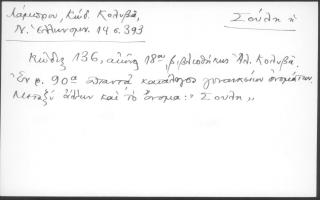 Λάμπρου, Κώδ. Κολυβᾶ,
Ν. Ἑλληνομν. 14 σ. 393
Σούλη ἡ
Κῶδιξ 136, αἰῶνος 18ου, βιβλιοθήκης Ἀλ. Κολυβᾶ.
Ἐν φ. 90α ἀπαντᾷ κατάλογος γυναικείων ὀνομάτων.
Μεταξὺ ἄλλων καὶ τὸ ὄνομα: "Σούλη"